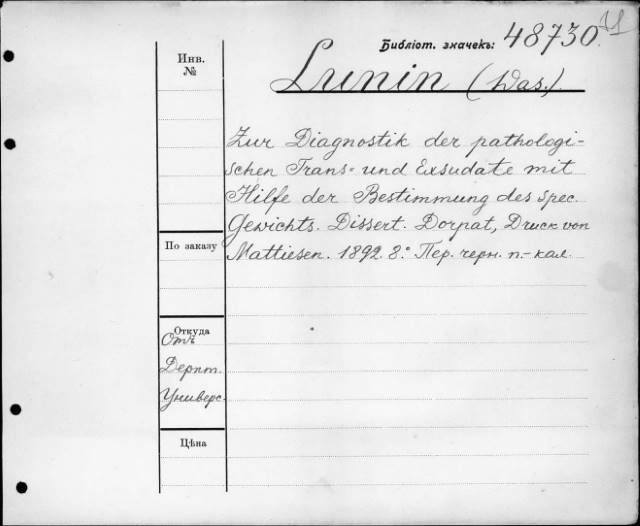 Библіот. значекъ: 48730.
Инв.
№
Lunin (Was.)
Zur Diagnostik der pathologi-
schen Trans- und Exsudate mit
Hilfe der Bestimmung des spec.
Gewichts. Dissert. Dorpat, Druck von
По заказу
Mattiesen. 1892. 8.° Пер. черн. п.-кал.
Откуда
Отъ
Дерпт.
Универс.
Цѣна